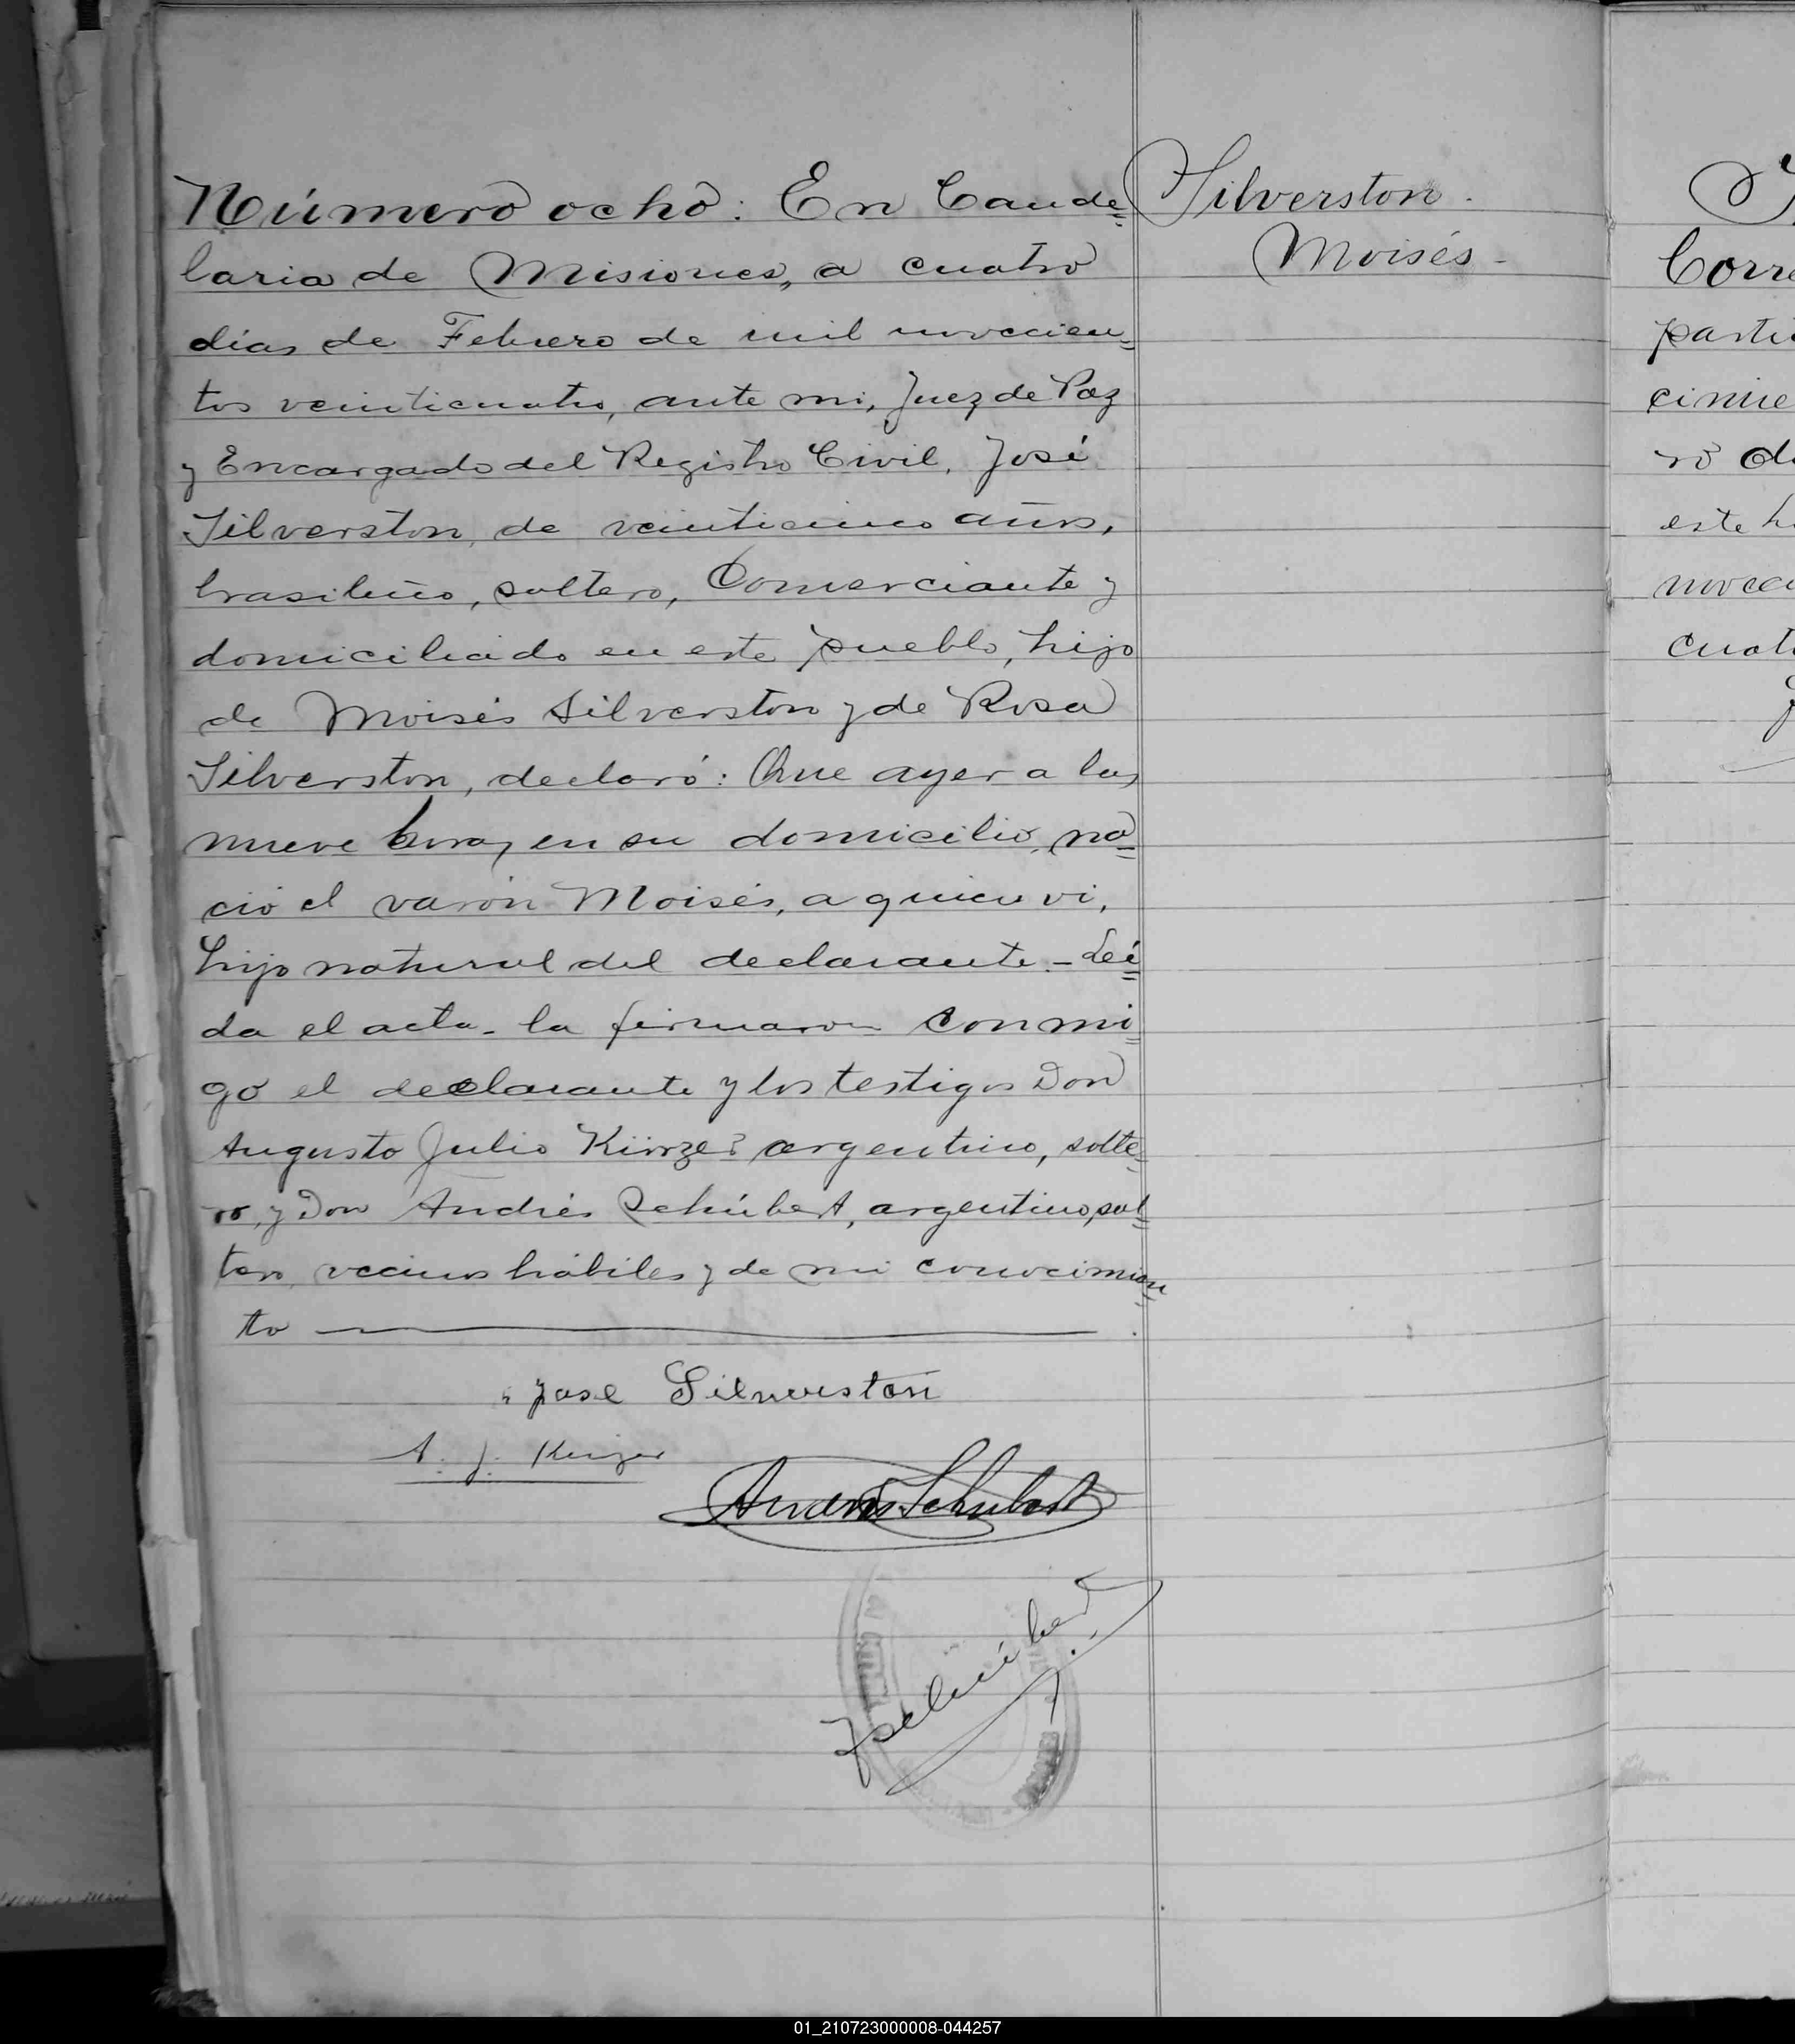 Número ocho: En Cande=
laria de Misiones, a cuatro
días de Febrero de mil novecien=
tos veinticuatro, ante mi, Juez de Paz
y Encargado del Registro Civil, José
Silverston, de veinticinco años,
brasileño, soltero, Comerciante y
domiciliado en este pueblo, hijo
de Moisés Silverston y de Rosa
Silverston, declaró: Que ayer a las
nueve horas, en su domicilio, na=
ció el varón Moisés, a quien vi,
hijo natural del declarante.- Leí=
da el acta, la firmaron conmi=
go el declarante y los testigos Don
Augusto Julio Kürzer argentino, solte=
ro, y Don Andrés Schúbert, argentino, sol=
tero, vecinos hábiles y de mi conocimien=
to
José Silverston
A. J. Kürzer
Andrés Schubert
Silverston
Moisés
Corre
parti
cimie
ro de
este h
novec
cuat
01_210723000008-044257